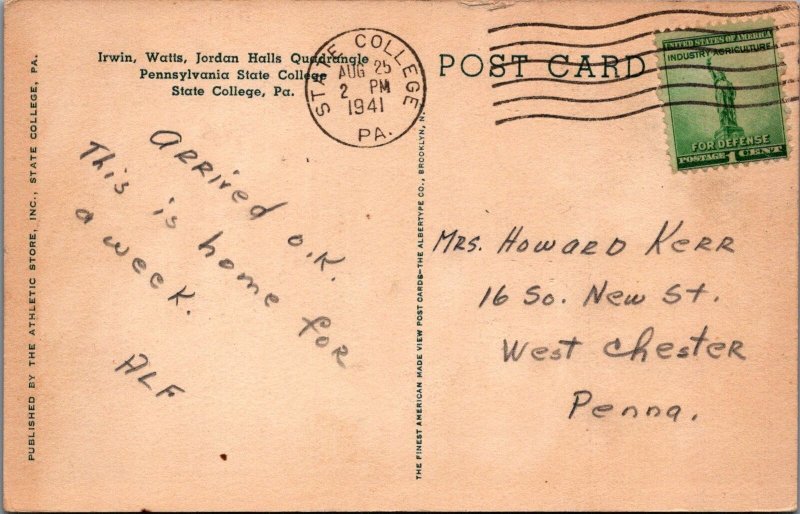 Irwin, Watts, Jordan Halls Quadrangle
Pennsylvania State College
State College, Pa.
STATE COLLEGE
AUG 25
2 PM
1941
PA.
POST CARD
UNITED STATES OF AMERICA
INDUSTRY AGRICULTURE
FOR DEFENSE
POSTAGE 1 CENT
PUBLISHED BY THE ATHLETIC STORE, INC., STATE COLLEGE, PA.
Arrived O.K.
This is home for
a week.
ALF
THE FINEST AMERICAN MADE VIEW POST CARDS—THE ALBERTYPE CO., BROOKLYN, N.
Mrs. Howard Kerr
16 So. New St.
West Chester
Penna.